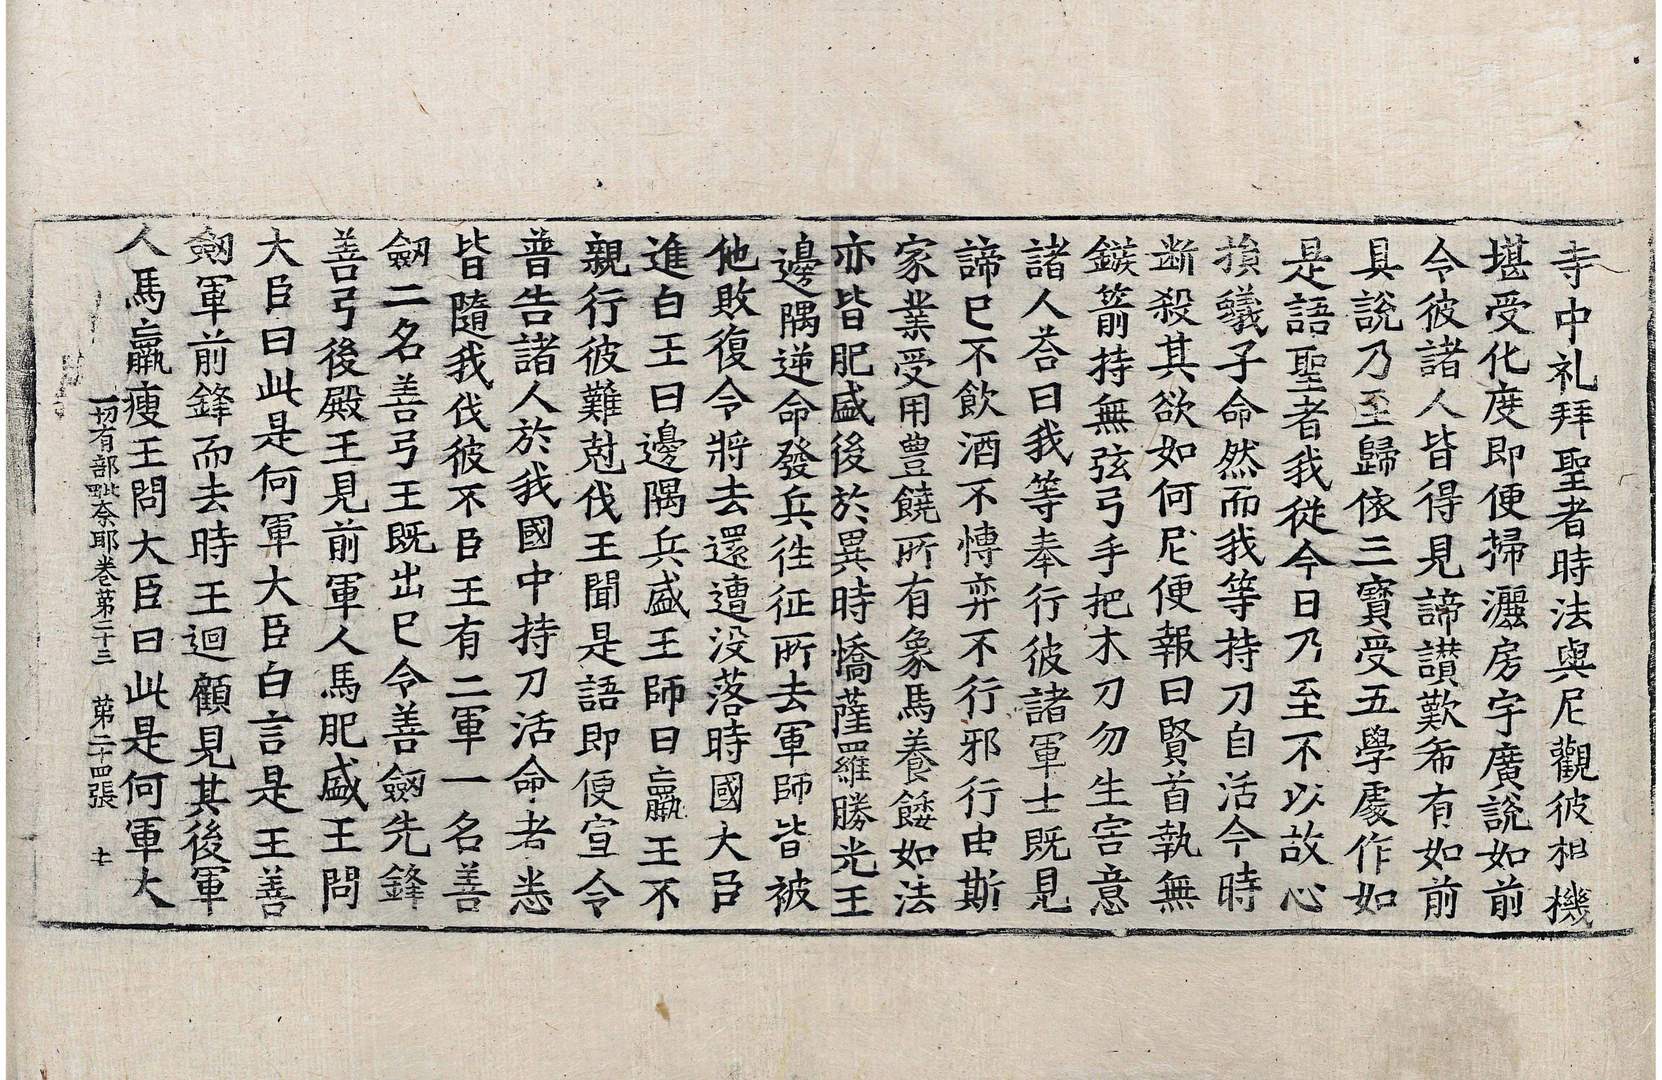 寺中礼拜聖者時法與尼觀彼根機
堪受化度即便掃灑房宇廣說如前
令彼諸人皆得見諦讃歎希有如前
具說乃至歸依三寶受五學處作如
是語聖者我從今日乃至不以故心
損蟻子命然而我等持刀自活今時
断殺其欲如何尼便報曰賢首執無
鏃箭持無弦弓手把木刀勿生害意
諸人荅曰我等奉行彼諸軍士既見
諦已不飲酒不慱弈不行邪行由斯
家業受用豊饒所有象馬養餧如法
亦皆肥盛後於異時憍薩羅勝光王
邊隅逆命發兵徃征所去軍師皆被
他敗復令將去還遭没落時國大臣
進白王曰邊隅兵盛王師日羸王不
親行彼難尅伐王聞是語即便宣令
普告諸人於我國中持刀活命者悉
皆隨我伐彼不臣王有二軍一名善
劒二名善弓王既出已令善劒先鋒
善弓後殿王見前軍人馬肥盛王問
大臣曰此是何軍大臣白言是王善
劒軍前鋒而去時王迴顧見其後軍
人馬羸瘦王問大臣曰此是何軍大
一切有部毗奈耶卷第二十三 第二十四張